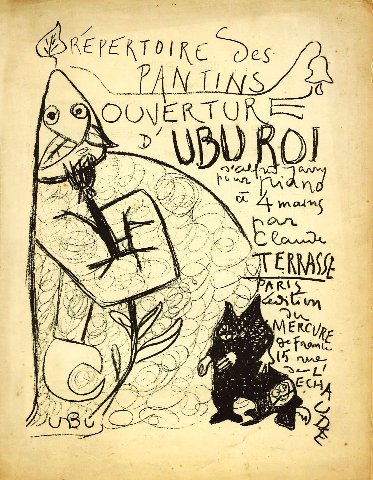 RÉPERTOIRE des
PANTINS
OUVERTURE
D'UBU ROI
d'Alfred Jarry
pour piano
à 4 mains
par
Claude
TERRASSE
PARIS
édition
du
MERCURE
de France
15 rue
de L'
ECHAUDÉ
UBU